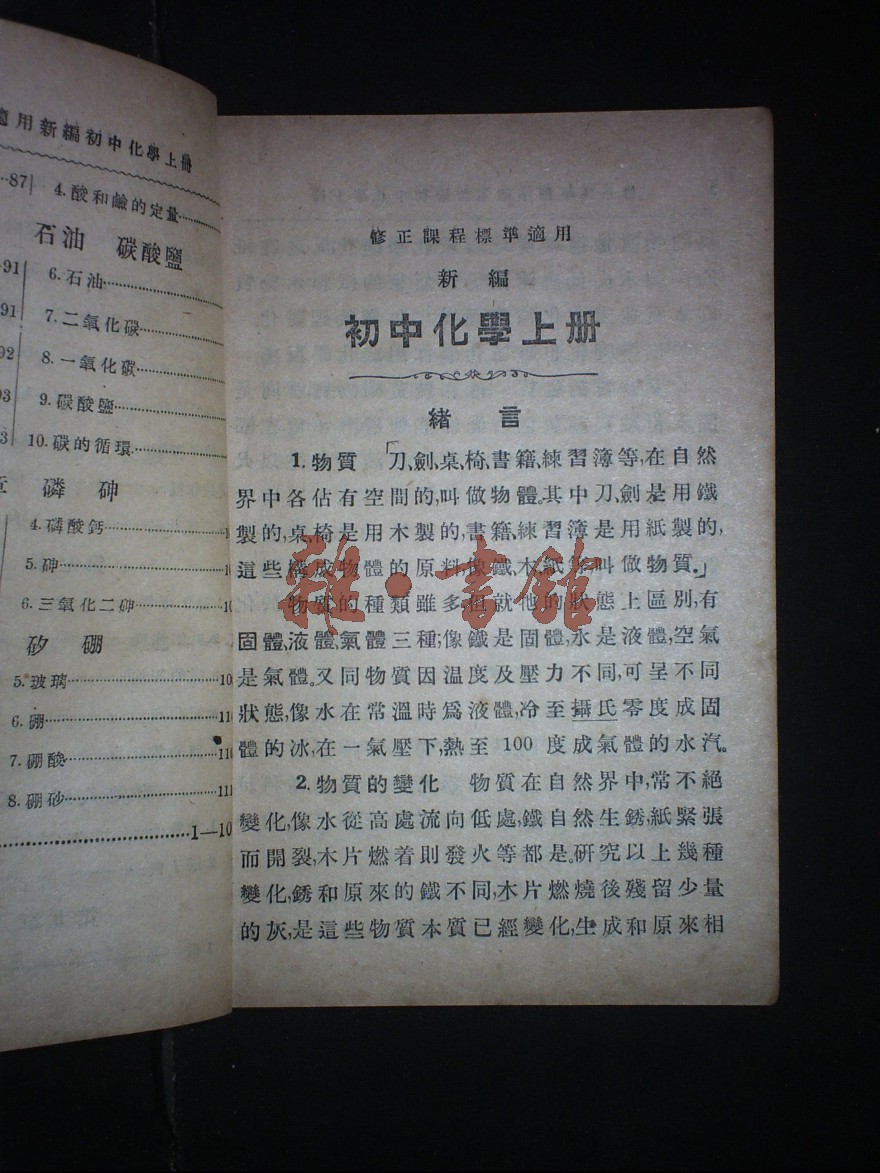 適用新編初中化學上册
87 4.酸和鹼的定量
石油 碳酸鹽
91 6.石油
91 7.二氧化碳
92 8.一氧化碳
93 9.碳酸鹽
3 10.碳的循環
章 磷 砷
4.磷酸鈣
5.砷
6.三氧化二砷
矽 硼
5.玻璃
6.硼
7.硼酸
8.硼砂
1—10
修正課程標準適用
新編
初中化學上册
緒言
1.物質 「刀、劍、桌、椅、書籍、練習簿等,在自然
界中各佔有空間的,叫做物體。其中刀、劍是用鐵
製的,桌、椅是用木製的,書籍、練習簿是用紙製的,
這些構成物體的原料,像鐵、木、紙等叫做物質。」
物質的種類雖多,但就牠的狀態上區別,有
固體,液體,氣體三種;像鐵是固體,水是液體,空氣
是氣體。又同物質因温度及壓力不同,可呈不同
狀態,像水在常溫時爲液體,冷至攝氏零度成固
體的冰,在一氣壓下,熱至100度成氣體的水汽。
2.物質的變化 物質在自然界中,常不絕
變化,像水從高處流向低處,鐵自然生銹,紙緊張
而開裂,木片燃着則發火等都是。研究以上幾種
變化,銹和原來的鐵不同,木片燃燒後殘留少量
的灰,是這些物質本質已經變化,生成和原來相
雜·書館